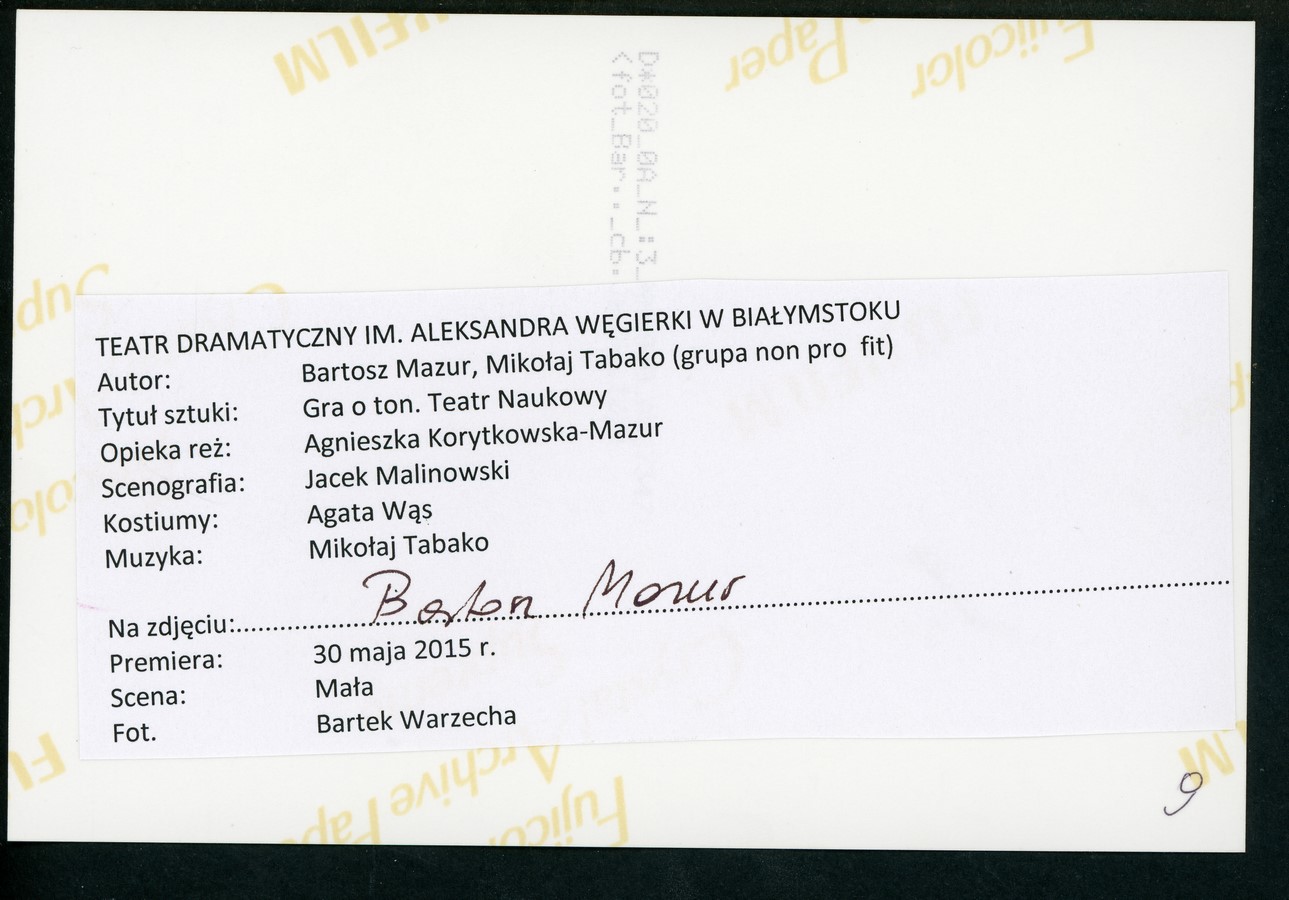 FUJIFILM
Fujicolor
Paper
D*020_0A_N_:3_
<fot_Bar.._cb.
TEATR DRAMATYCZNY IM. ALEKSANDRA WĘGIERKI W BIAŁYMSTOKU
Autor: Bartosz Mazur, Mikołaj Tabako (grupa non pro fit)
Tytuł sztuki: Gra o ton. Teatr Naukowy
Opieka reż: Agnieszka Korytkowska-Mazur
Scenografia: Jacek Malinowski
Kostiumy: Agata Wąs
Muzyka: Mikołaj Tabako
Na zdjęciu: Bartosz Mazur
Premiera: 30 maja 2015 r.
Scena: Mała
Fot. Bartek Warzecha
Fujicolor
Archive Paper
9